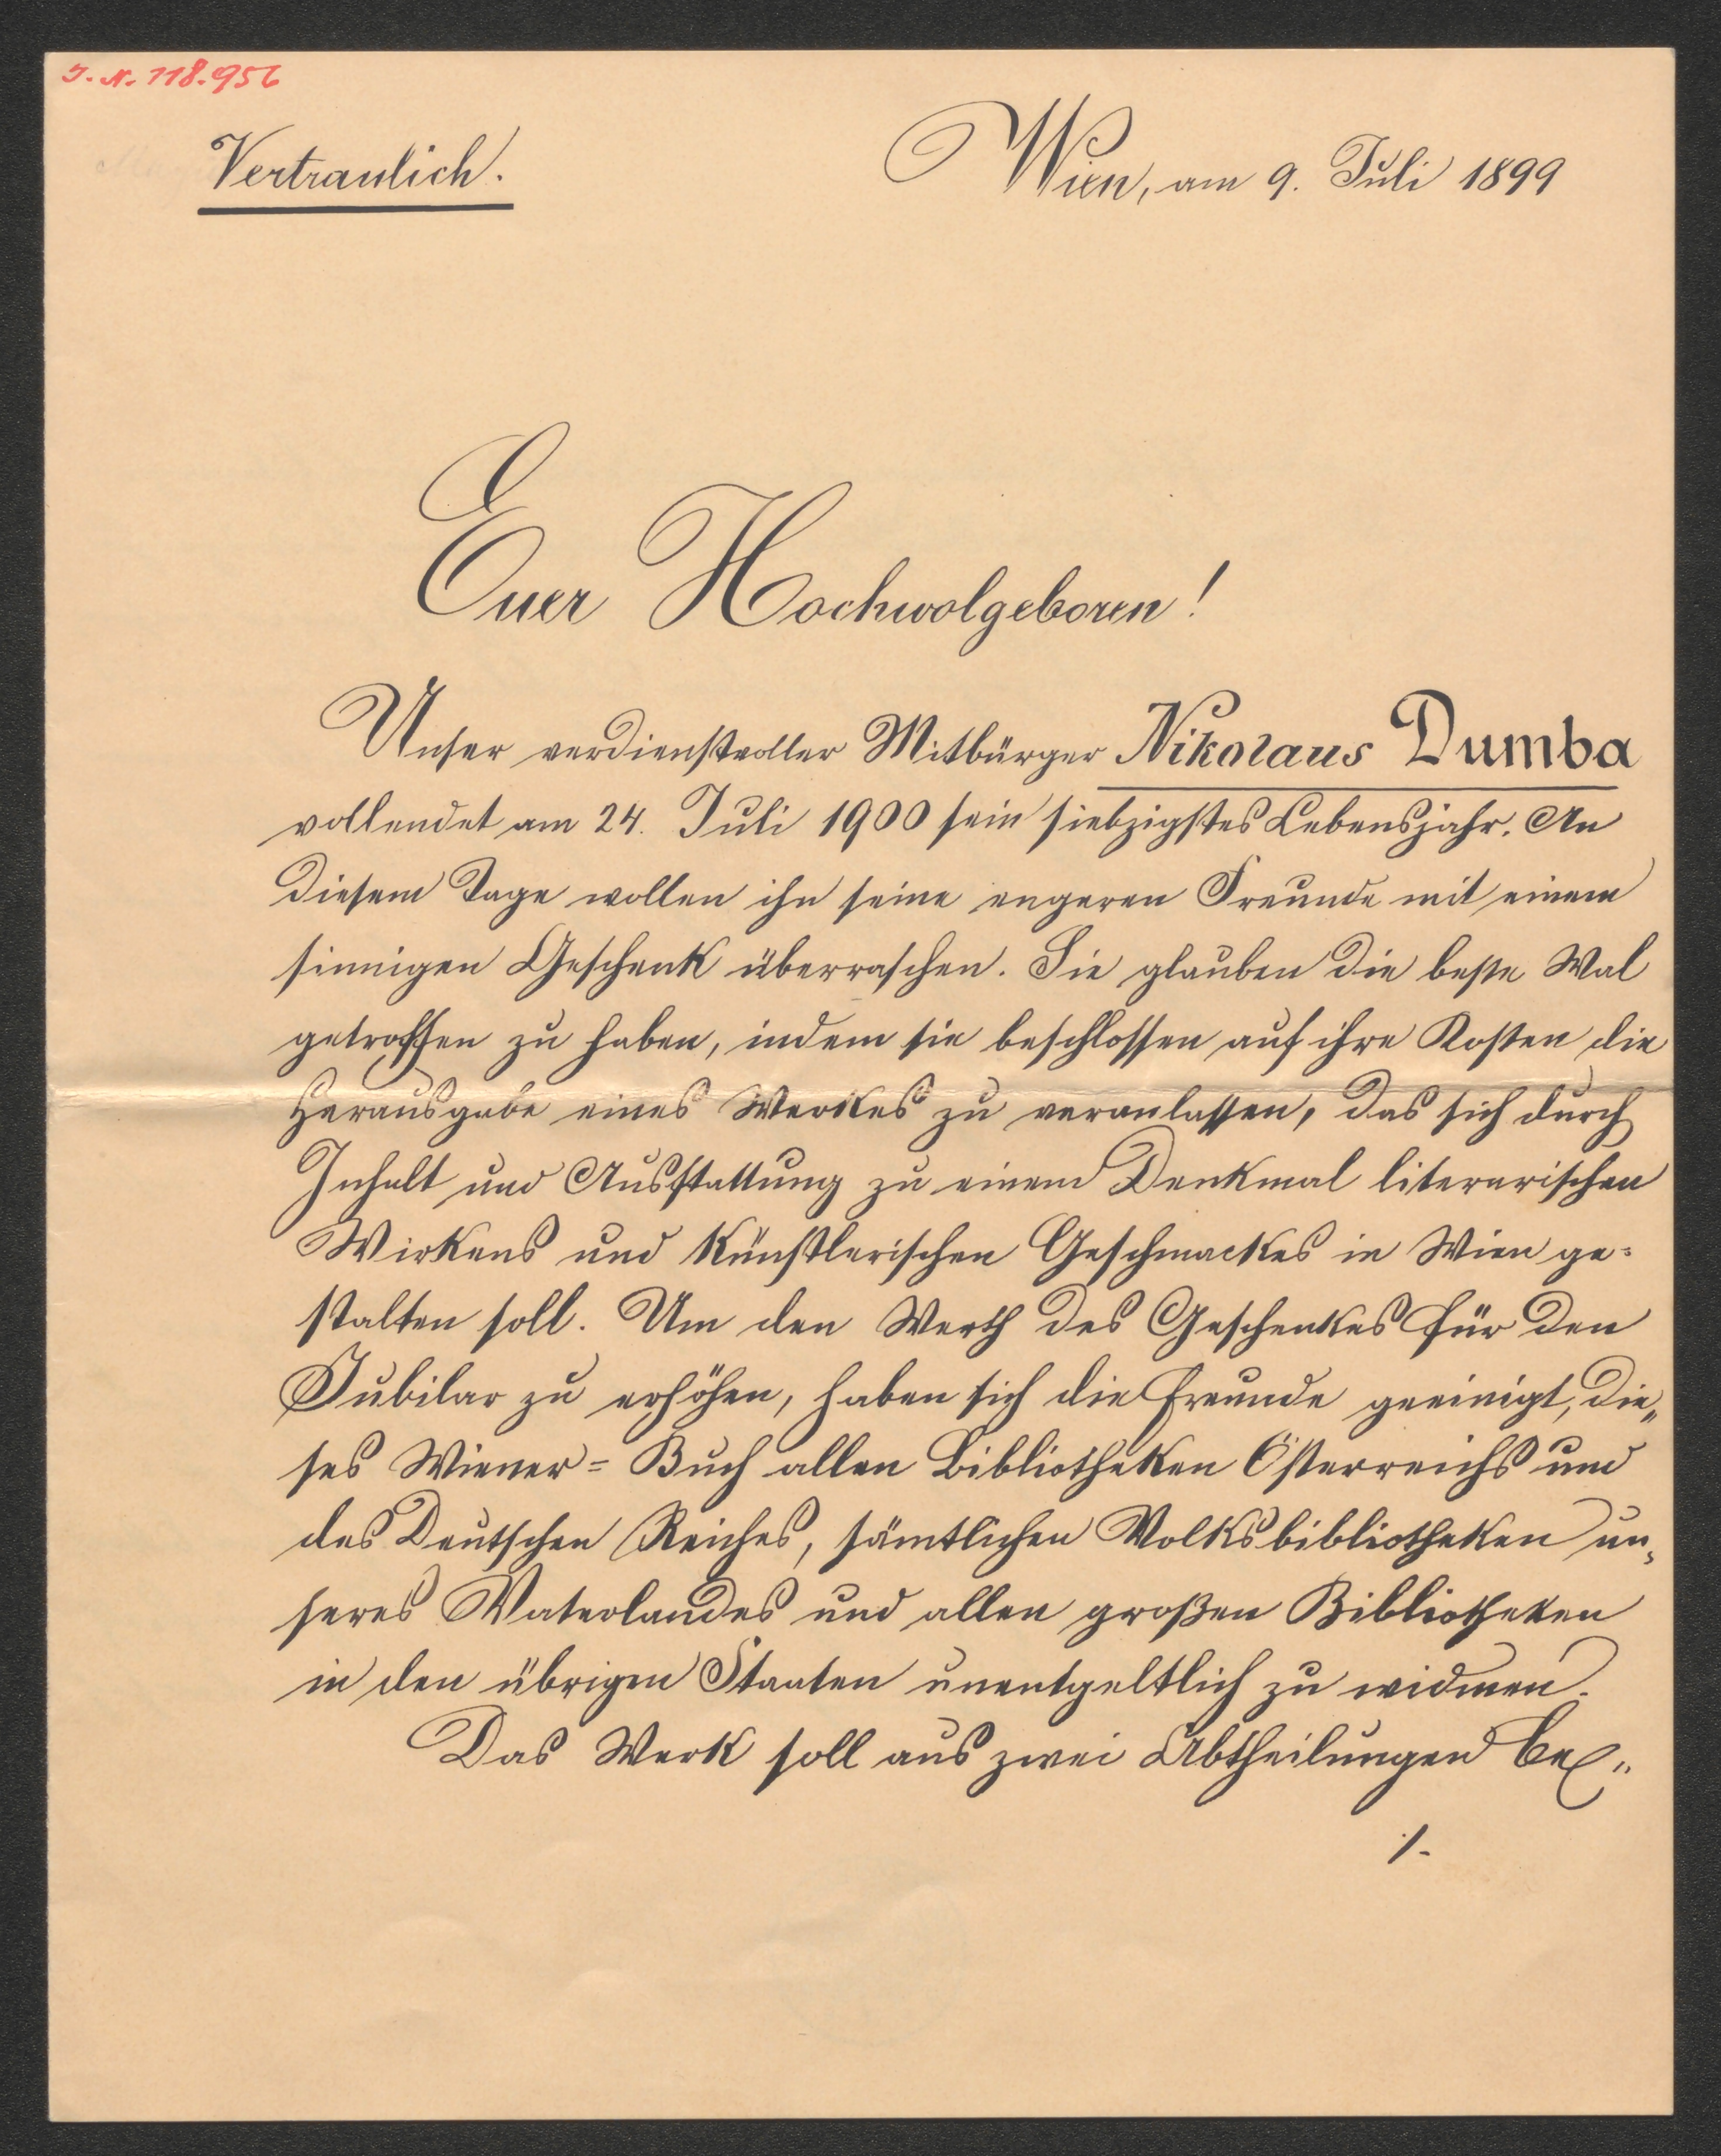 J. N. 118.956
Vertraulich.
Wien, am 9. Juli 1899
Euer Hochwolgeboren!
Unser verdienstvoller Mitbürger Nikolaus Dumba
vollendet am 24. Juli 1900 sein siebzigstes Lebensjahr. An
diesem Tage wollen ihn seine engeren Freunde mit einem
sinnigen Geschenk überraschen. Sie glauben die beste Wal
getroffen zu haben, indem sie beschlossen auf ihre Kosten die
Herausgabe eines Werkes zu veranlassen, das sich durch
Inhalt und Ausstattung zu einem Denkmal literarischen
Wirkens und künstlerischen Geschmackes in Wien ge-
stalten soll. Um den Werth des Geschenkes für den
Jubilar zu erhöhen, haben sich die Freunde geeinigt, die„
ses Wiener=Buch allen Bibliotheken Österreichs und
des Deutschen Reiches, sämtlichen Volksbibliotheken un„
seres Vaterlandes und allen großen Bibliotheken
in den übrigen Staaten unentgeltlich zu widmen.
Das Werk soll aus zwei Abtheilungen be„
./.